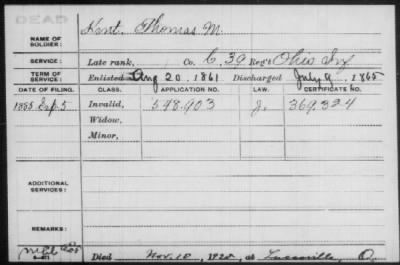 DEAD
NAME OF SOLDIER: Kent, Thomas M.
SERVICE: Late rank, Co. C. 39 Reg't Ohio Inf
TERM OF SERVICE: Enlisted Aug 20. 1861 Discharged July 9, 1865
DATE OF FILING. CLASS. APPLICATION NO. LAW. CERTIFICATE NO.
1885 Sep. 5 Invalid, 548.903 J. 369.324
Widow,
Minor,
ADDITIONAL SERVICES:
REMARKS:
3-671 Died Nov. 18, 1920, at Lucasville, O.